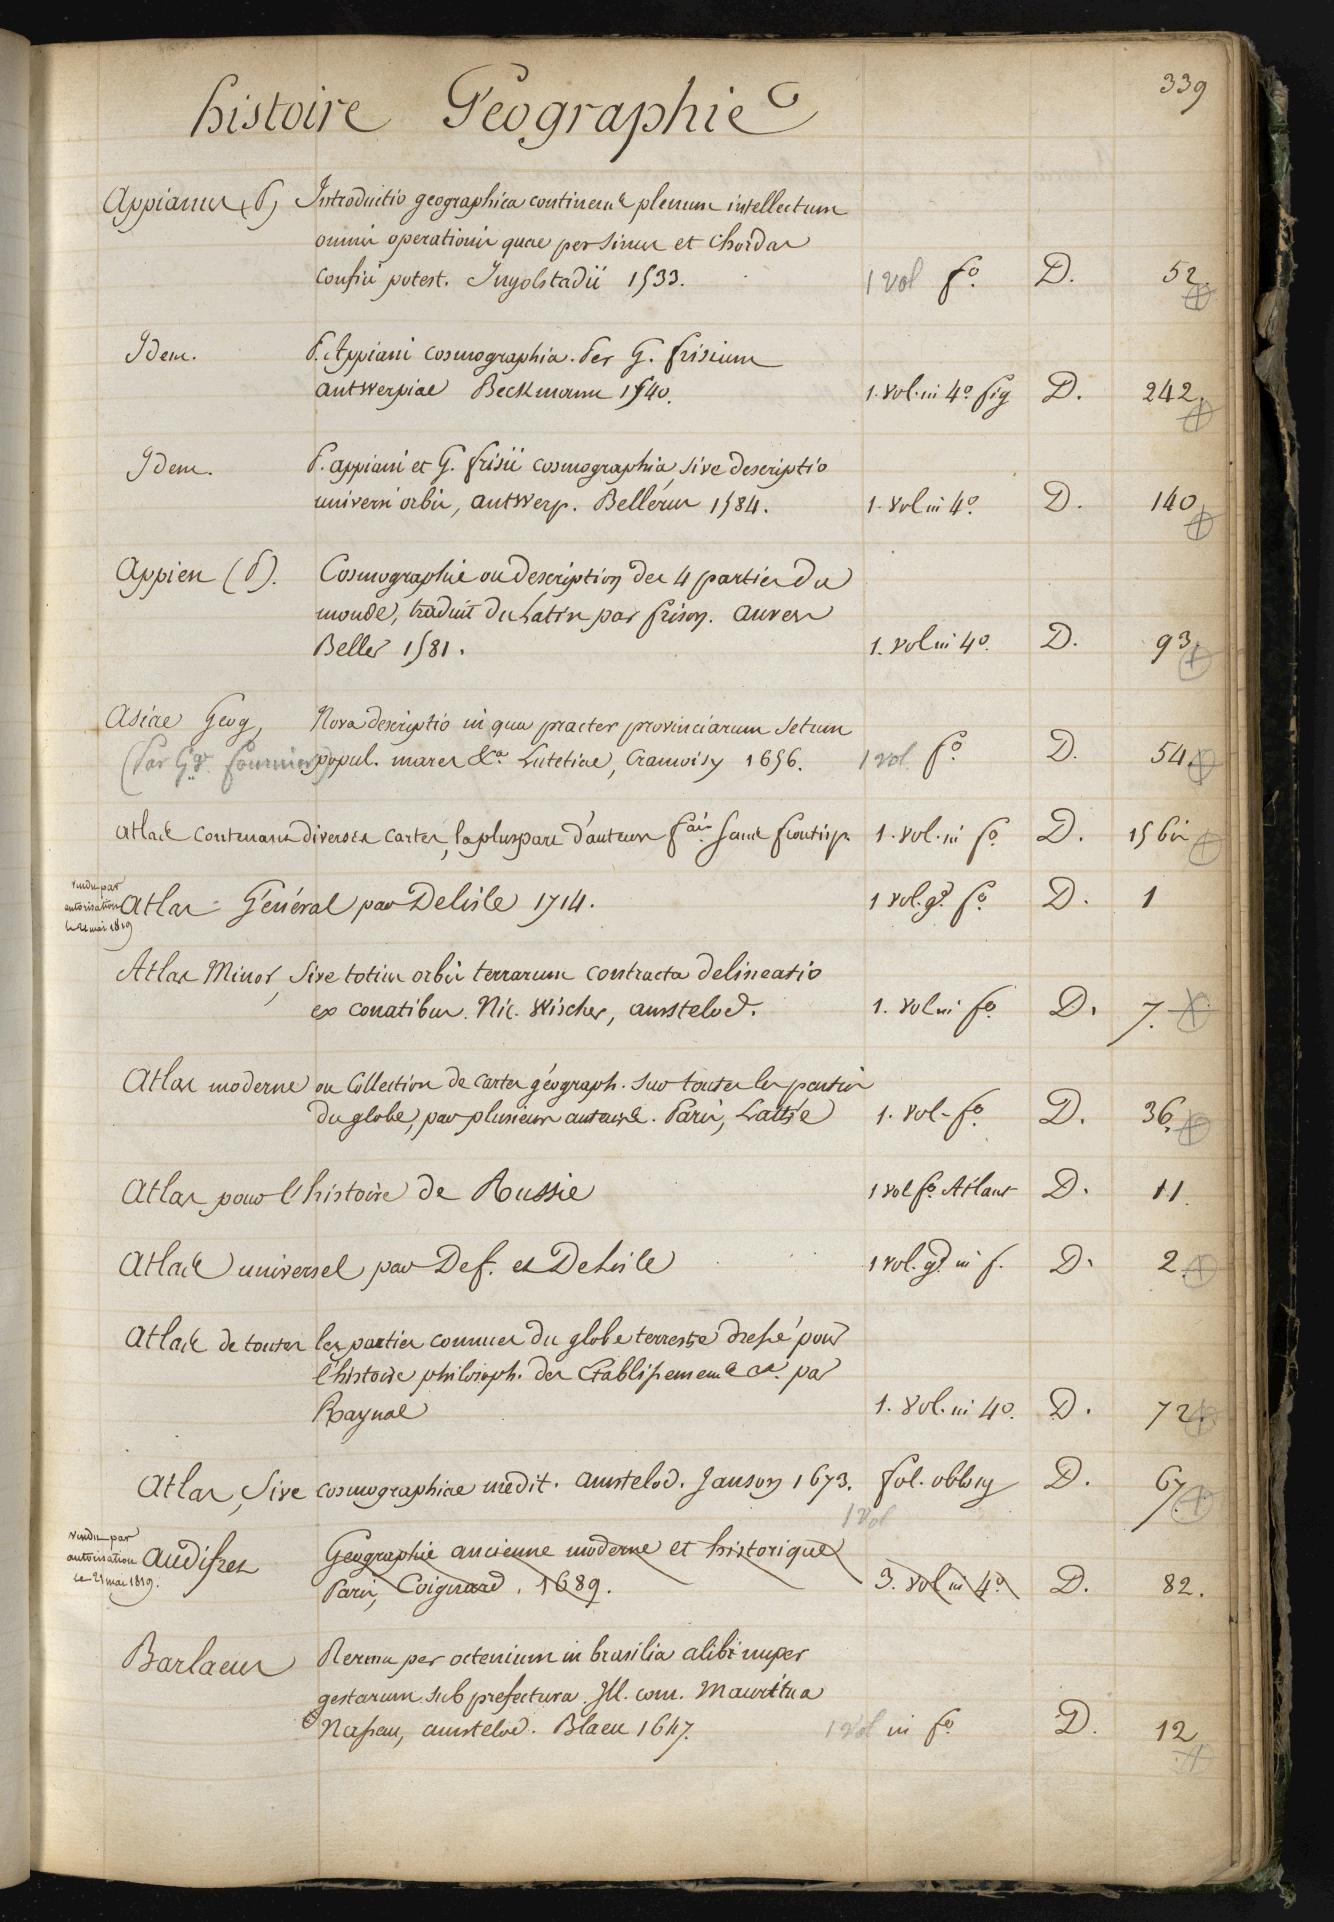 339
histoire Géographie
Appianus (P) Introductio geographica continens plenum intellectum
omnis operationis quae per sinus et Chordas
confici potest. Ingolstadii 1533. 1 vol fo. D. 52.
Idem. P. Appiani cosmographia. Per G. frisium
antwerpiae Beckmann 1540. 1. vol. in 4o fig D. 242.
Idem. P. appiani et G. frisii cosmographia, sive descriptio
universi orbis, antwerp. Bellérus 1584. 1. vol in 4o. D. 140
Appien (P). Cosmographie ou description des 4 parties du
monde, traduit du Latin par frison. anvers
Beller 1581. 1. vol in 4o. D. 93.
Asiae Geog, Nova descriptio in qua praeter provinciarum Setum
(Par Gges. Fournier) popul. mares &a. Lutetiae, Cramoisy 1656. 1 vol. fo. D. 54.
Atlas contenant diverses cartes, la pluspart d'auteurs fais. sans frontisp. 1. vol. in fo D. 15 bis
vendu par
autorisation
le 21 mai 1819
Atlas Général par Delisle 1714. 1 vol. gd. fo. D. 1
Atlas Minor, Sive totius orbis terrarum contracta delineatio
ex conatibus. Nic. Wischer, amstelod. 1. vol in fo. D. 7.
Atlas moderne ou Collection de cartes géograph. sur toutes les parties
du globe, par plusieurs auteurs. Paris, Lattré 1. vol - fo. D. 36.
Atlas pour l'histoire de Russie 1 vol fo. Atlant D. 11.
Atlas universel par Def. et Delisle 1 vol. gd. in f. D. 2.
Atlas de toutes les parties connues du globe terrestre dressé pour
l'histoire philosoph. des Etablissements &a. par
Raynal 1. vol. in 4o. D. 72.
Atlas, Sive cosmographiae medit. amstelod. Janson 1673. fol. oblong D. 67.
1 vol
vendu par
autorisation
le 21 mai 1819.
Audifret Geographie ancienne moderne et historique
Paris, Coignard. 1689. 3. vol in 4o. D. 82.
Barlaeus Rerum per octenium in brasilia alibi nuper
gestarum sub prefectura. Ill. com. Mauritii a
Nassau, amstelod. Blaeu 1647. 1 vol in fo D. 12